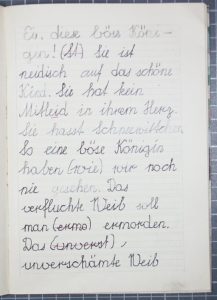 Ei, diese böse Köni-
gen! (St) Sie ist
neidisch auf das schöne
Kind. Sie hat kein
Mitleid in ihrem Herz.
Sie hasst Schneewittchen.
So eine böse Königin
haben (wie) wir noch
nie gesehen. Das
verfluchte Weib soll
man (ermo) ermorden.
Das (unverst),
unverschämte Weib